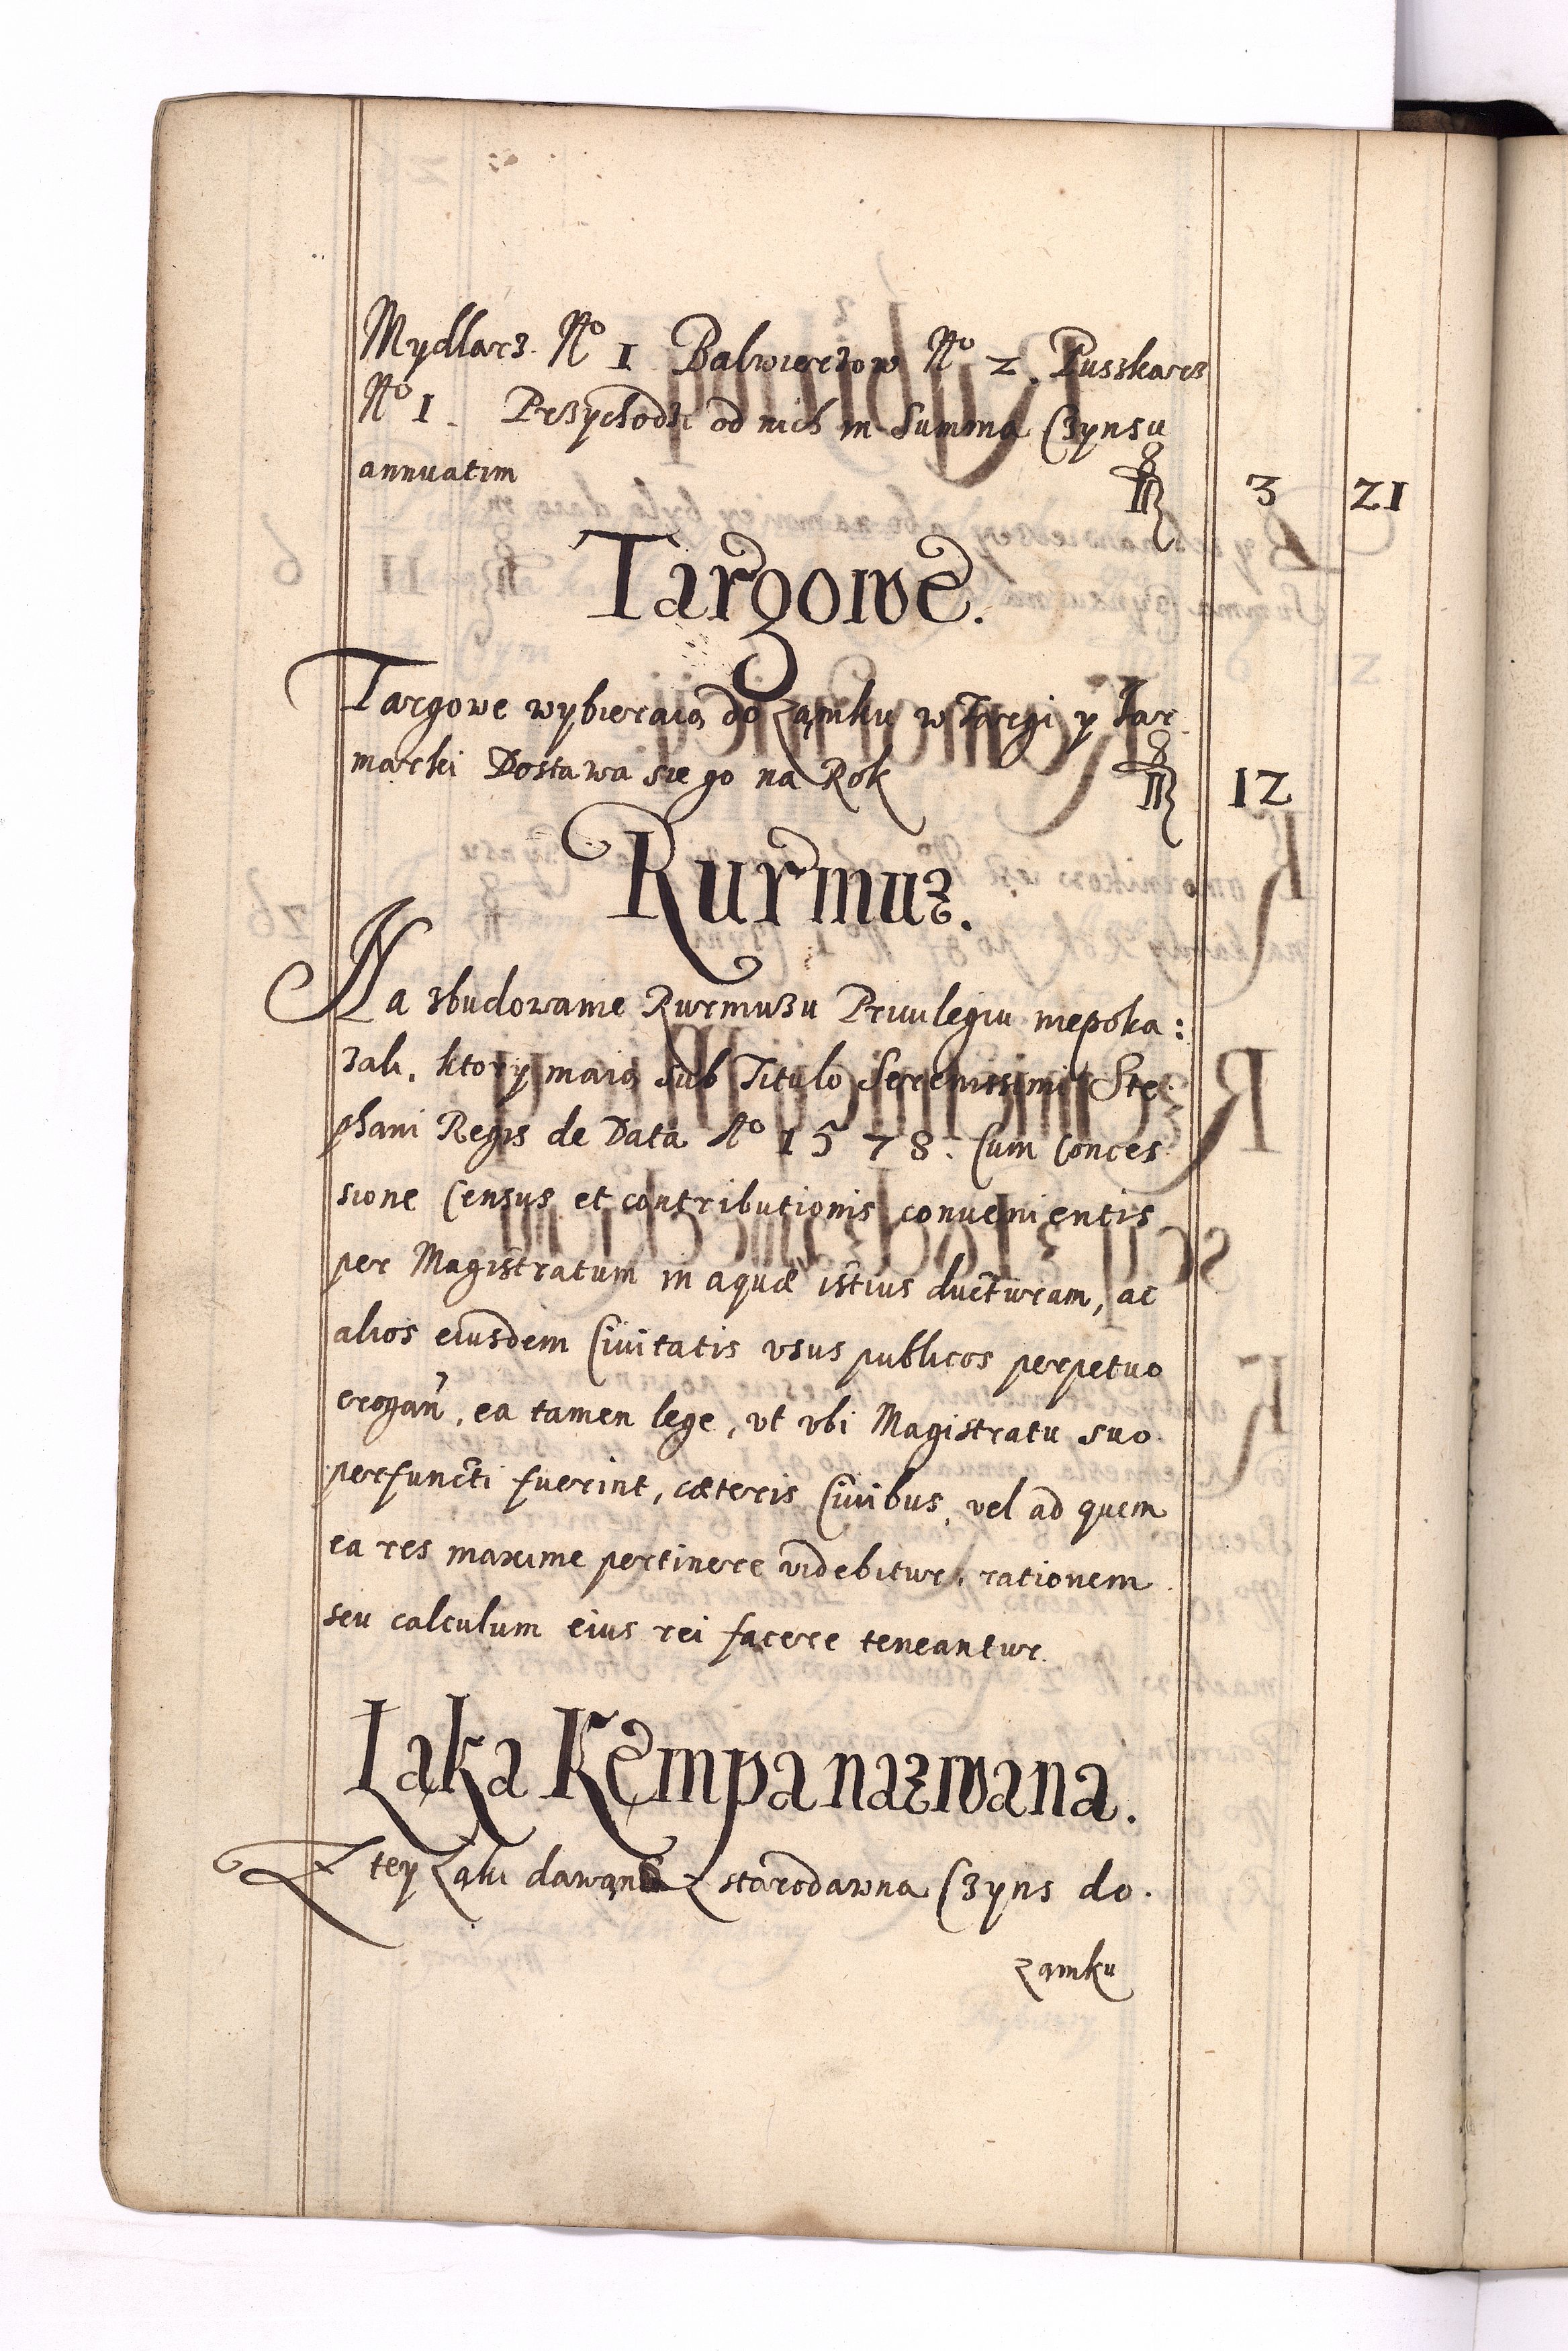 Mydlarz. No 1 Balwierzow No 2. Pusskarz
No 1. Przychodzi od nich in Summa Czynsu
annuatim 3 21
Targowe.
Targowe wybieraią do Zamku w Targi y Jar
marki Dostawa sie go na Rok 12
Rurmuz.
Na zbudowanie Rurmuzu Priuilegiu niepoka:
zali, ktory maią sub Titulo Serenissimi Ste
phani Regis de Data Ao 1578. Cum conces
sione Census et contributionis conuenientis
per Magistratum in aquæ istius ducturam, ac
alios eiusdem Ciuitatis vsus publicos perpetuo
erogan, ea tamen lege, vt vbi Magistratu suo
perfuncti fuerint, cæteris Ciuibus, vel ad quem
ea res maxime pertinere videbitur, rationem
seu calculum eius rei facere teneantur.
Ląka Kempa nazwana.
Z tey Ląki dawano z starodawna Czyns do.
Zamku